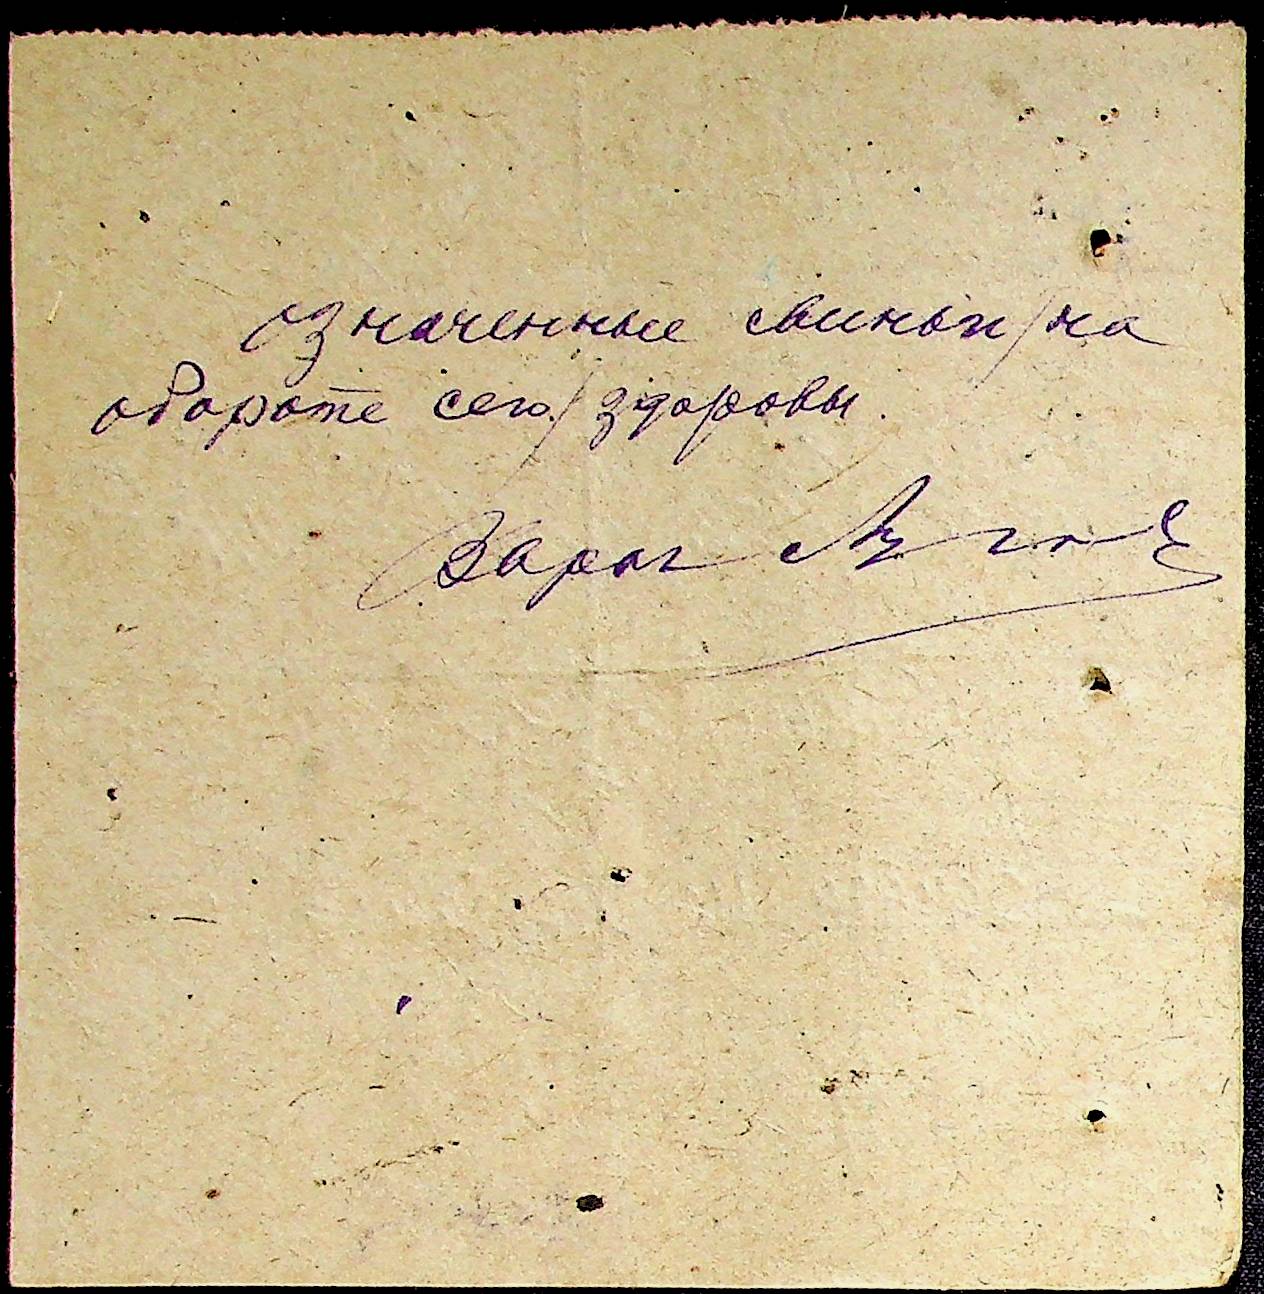 означенные свиньи/на
обороте сего/здоровы.